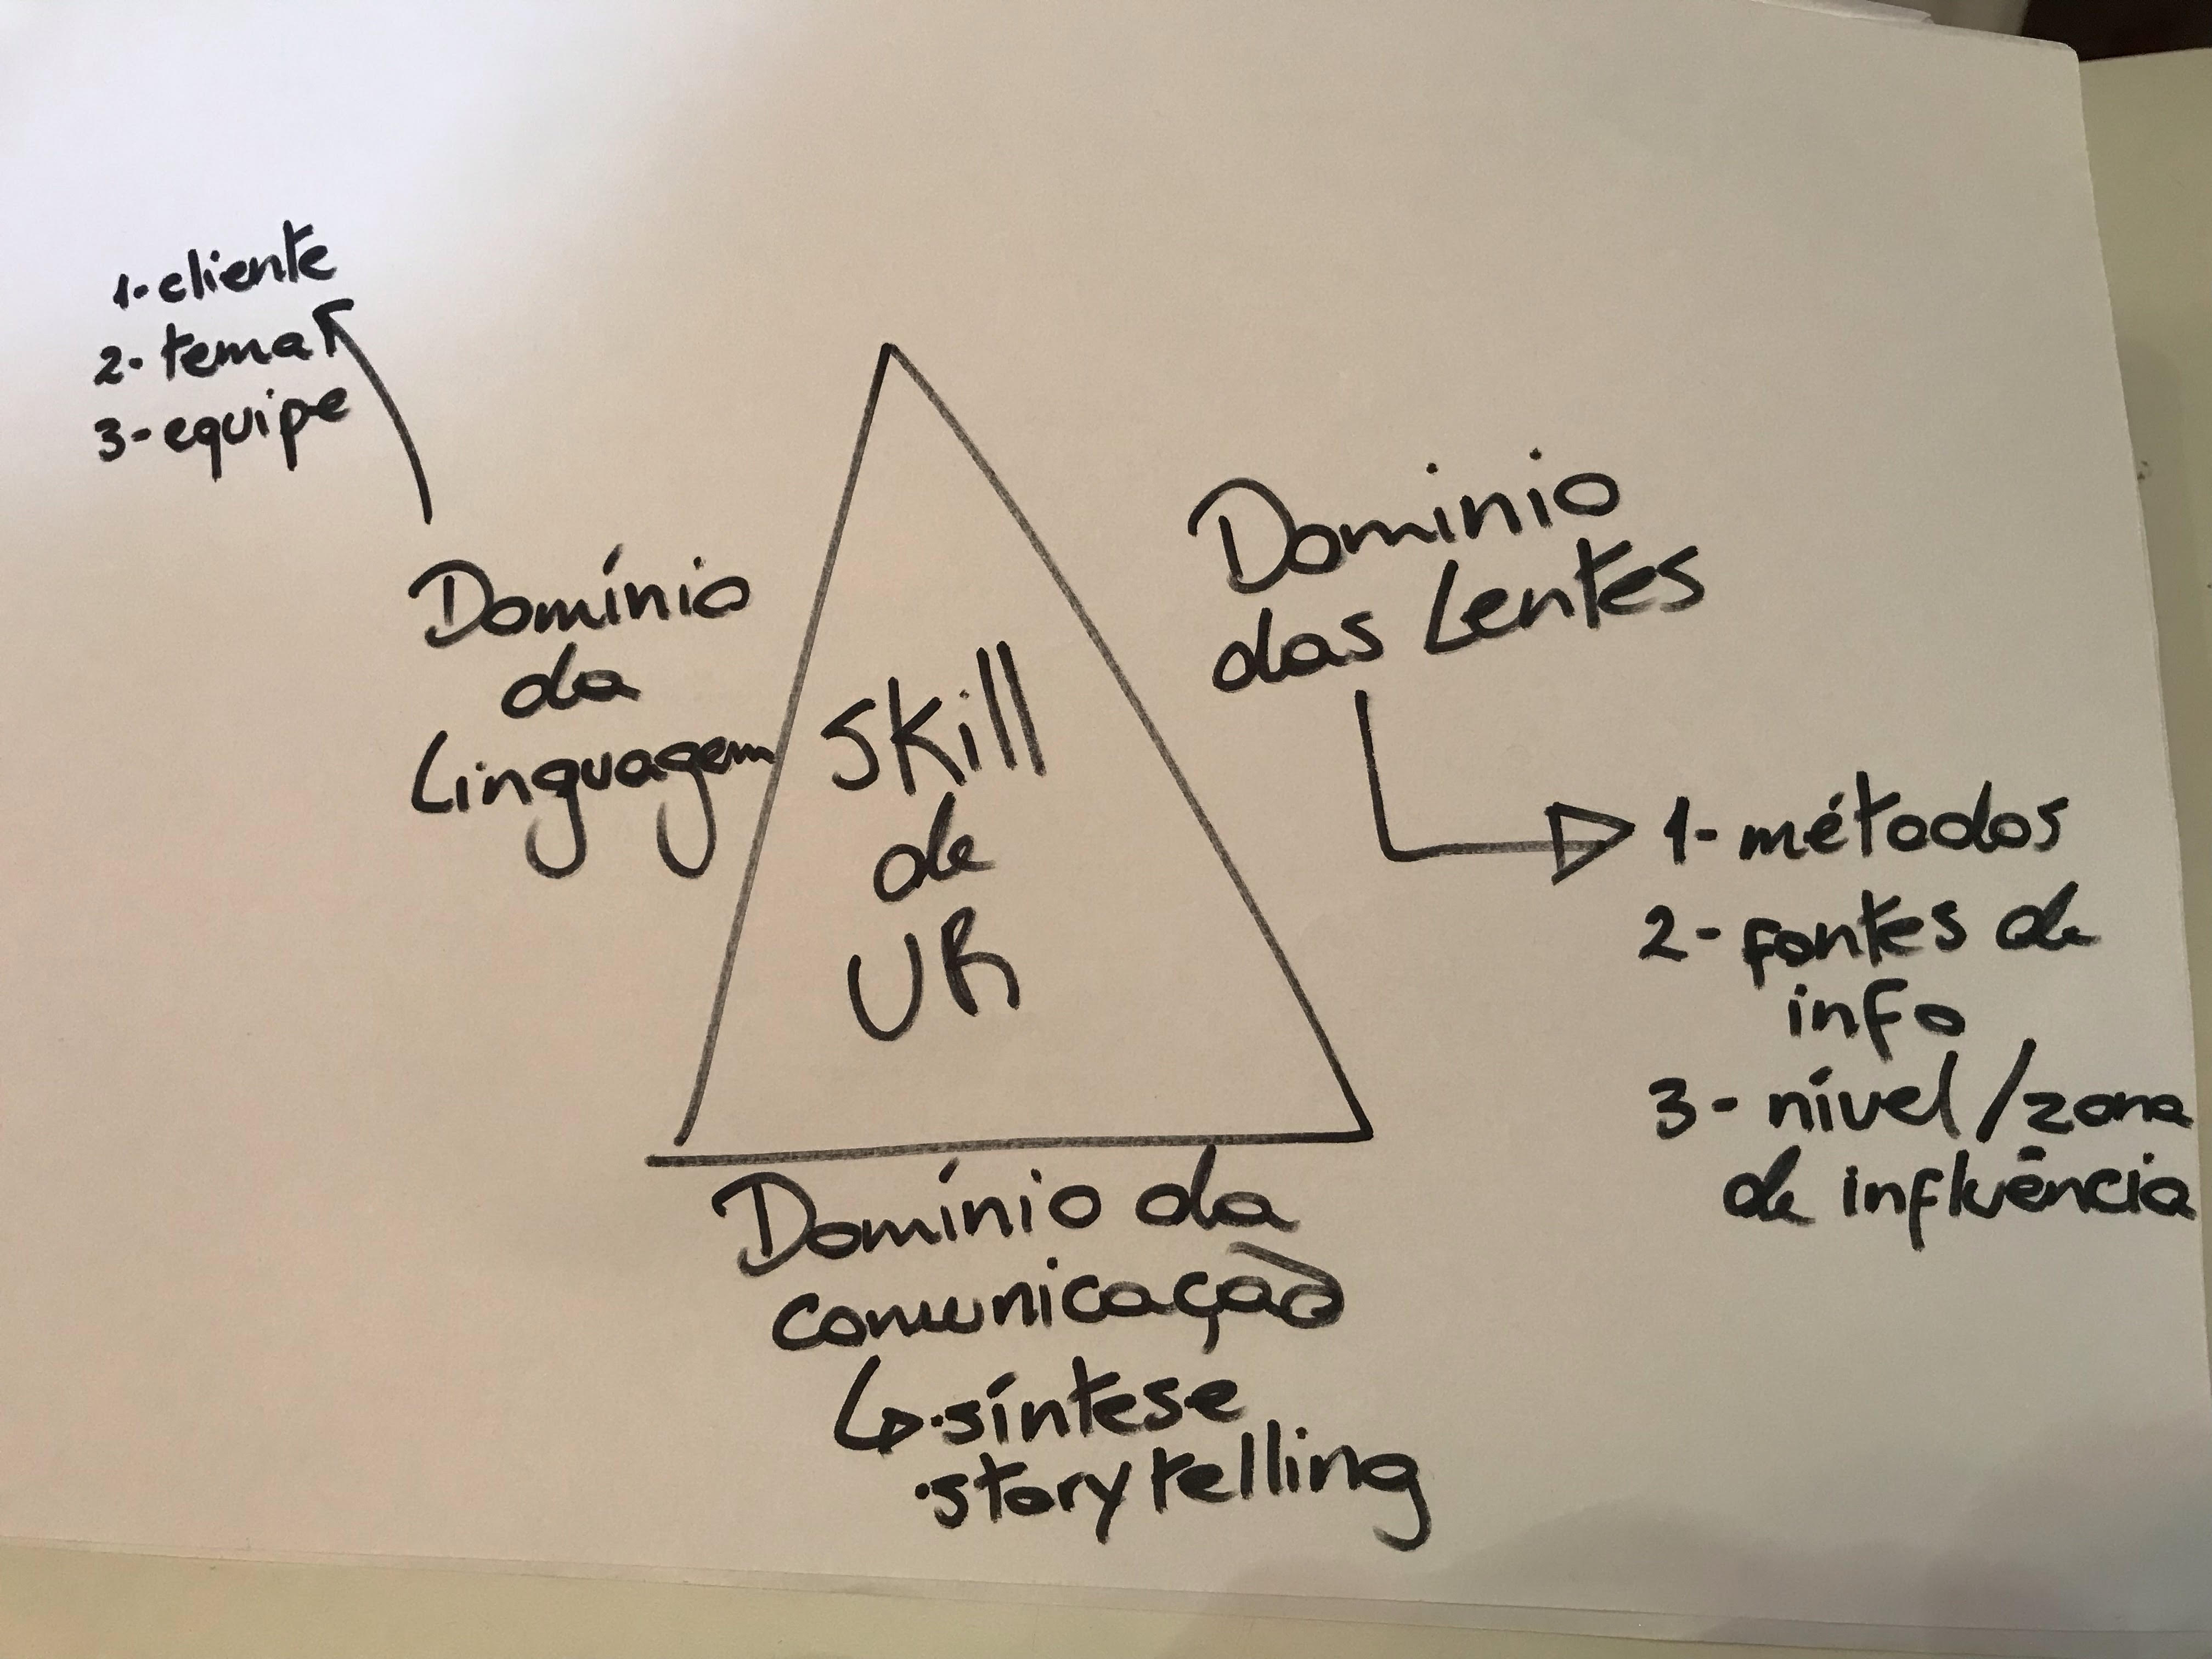 1- cliente
2- tema
3- equipe
Domínio
da
Linguagem
Skill
de
UR
Dominio
das Lentes
1- métodos
2- fontes de
info
3- nível/zona
de influência
Domínio da
comunicação
·síntese
·storytelling